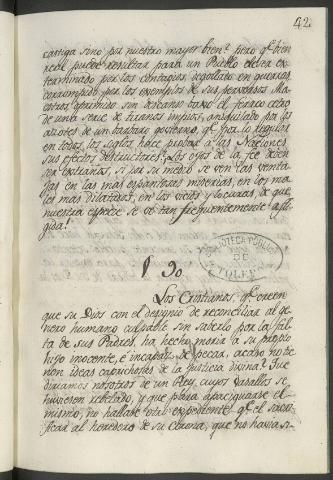 42
castiga sino por nuestro mayor bien? pero q.e bien
real puede resultar para un Pueblo el ver ex
terminado por los contagios, degollado en guerras,
corrompido por los exemplos de sus perversos Ma
estros, oprimido sin descanso baxo el ferreo cetro
de una serie de tiranos impios, aniquilado por los
azotes de un barbaro govierno, q.e por lo regular
en todos los siglos hace probar a las Naciones
sus efectos destructores? Los ojos de la fe deven
ser extraños, si por su medio se ven las venta
jas en las mas espantosas miserias, en los ma
les mas dilatados, en los vicios y locuras de que
nuestra especie se ve tan frequentemente afli
gida!
BIBLIOTECA PUBLICA
DE
TOLEDO
§ 90.
Los Cristianos, q.e creen
que su Dios con el designio de reconciliar al ge
nero humano culpable sin saberlo por la fal
ta de sus Padres, ha hecho morir a su propio
hijo inocente, é incapaz de pecar, acaso no tie
nen ideas caprichosas de la justicia divina? Que
diriamos nosotros de un Rey, cuyos vasallos se
huviesen rebelado, y que para apaciguarse él
mismo, no hallase otro expediente q.e el sacri
ficar al heredero de su Corona, que no havia si-